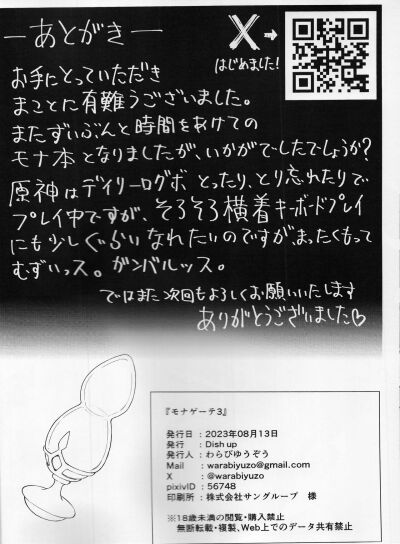 ―あとがき―
X→
はじめました!
お手にとっていただき
まことに有難うございました。
またずいぶんと時間をあけての
モナ本となりましたが、いかがでしたでしょうか?
原神はデイリーログボ とったり、とり忘れたりで
プレイ中ですが、そろそろ横着キーボードプレイ
にも少しぐらい なれたいのですが、まったくもって
むずいっス。ガンバルッス。
ではまた次回もよろしくお願いいたします
ありがとうございました♡
『モナゲーテ3』
発行日 : 2023年08月13日
発行 : Dish up
発行人 : わらびゆうぞう
Mail : warabiyuzo@gmail.com
X : @warabiyuzo
pixivID : 56748
印刷所 : 株式会社サングループ 様
※18歳未満の閲覧・購入禁止
無断転載・複製、Web上でのデータ共有禁止